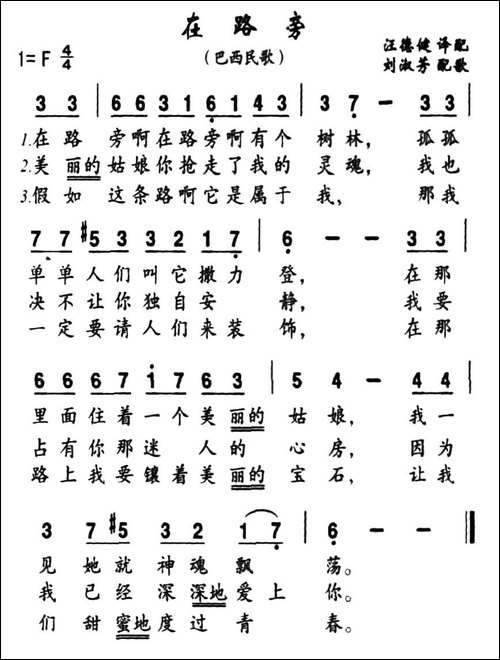 在路旁
(巴西民歌)
汪德健 译配
刘淑芳 配歌
1=F 4/4
3 3 | 6 6 3 1 6 1 4 3 | 3 7 - 3 3 |
1.在路 旁啊在路旁啊有个 树林， 孤孤
2.美丽的姑娘你抢走了我的 灵魂， 我也
3.假如 这条路啊它是属于 我， 那我
7 7 #5 3 3 2 1 7 | 6 - - 3 3 |
单单人们叫它撒力 登， 在那
决不让你独自安 静， 我要
一定要请人们来装 饰， 在那
6 6 6 7 1 7 6 3 | 5 4 - 4 4 |
里面住着一个美丽的 姑娘， 我一
占有你那迷 人的 心房， 因为
路上我要镶着美丽的 宝石， 让我
3 7 #5 3 2 1 7 | 6 - -
见她就神魂飘 荡。
我已经深深地爱上 你。
们甜蜜地度过青 春。